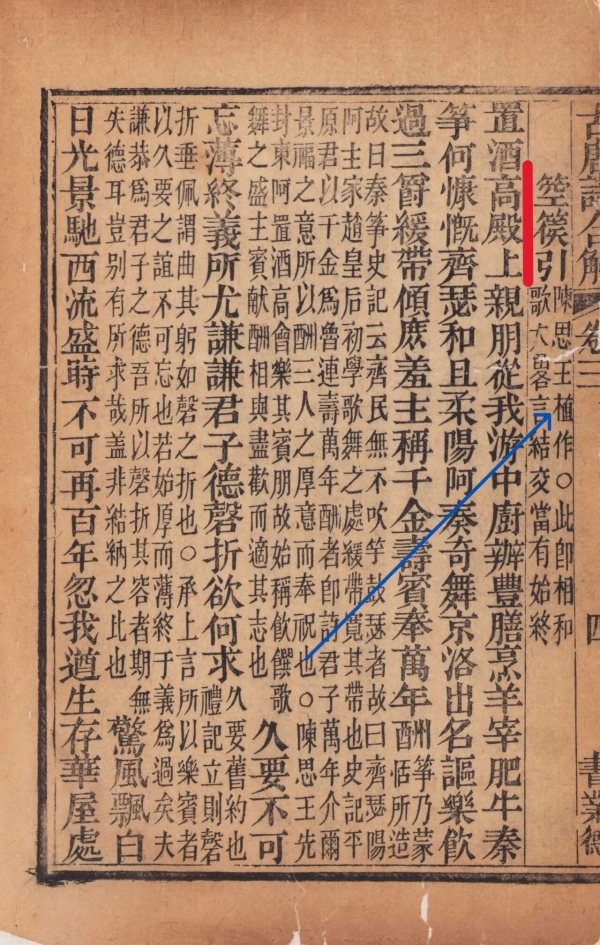 古唐詩合解 卷三 四 書業德
箜篌引
陳思王植作○此卽相和
歌大畧言結交當有始終
置酒高殿上親朋從我游中廚辦豐膳烹羊宰肥牛秦
箏何慷慨齊瑟和且柔陽阿奏奇舞京洛出名謳樂飲
過三爵緩帶傾庶羞主稱千金壽賓奉萬年酬
箏乃蒙
恬所造
故曰秦箏史記云齊民無不吹竽鼓瑟者故曰齊瑟陽
阿主家趙皇后初學歌舞之處緩帶寬其帶也史記平
原君以千金爲魯連壽萬年酬者卽詩君子萬年介爾
景福之意所以酬三人之厚意而奉祝也○陳思王先
封東阿置酒高會樂其賓朋故始稱飲饌歌
舞之盛主賓獻酬相與盡歡而適其志也
久要不可
忘薄終義所尤謙謙君子德磬折欲何求
久要舊約也
禮記立則磬
折垂佩謂曲其躬如磬之折也○承上言所以樂賓者
以久要之誼不可忘也若始厚而薄終於義爲過矣夫
謙恭爲君子之德吾所以磬折其容者期無
失德耳豈别有所求哉蓋非結納之比也
驚風飄白
日光景馳西流盛時不可再百年忽我遒生存華屋處